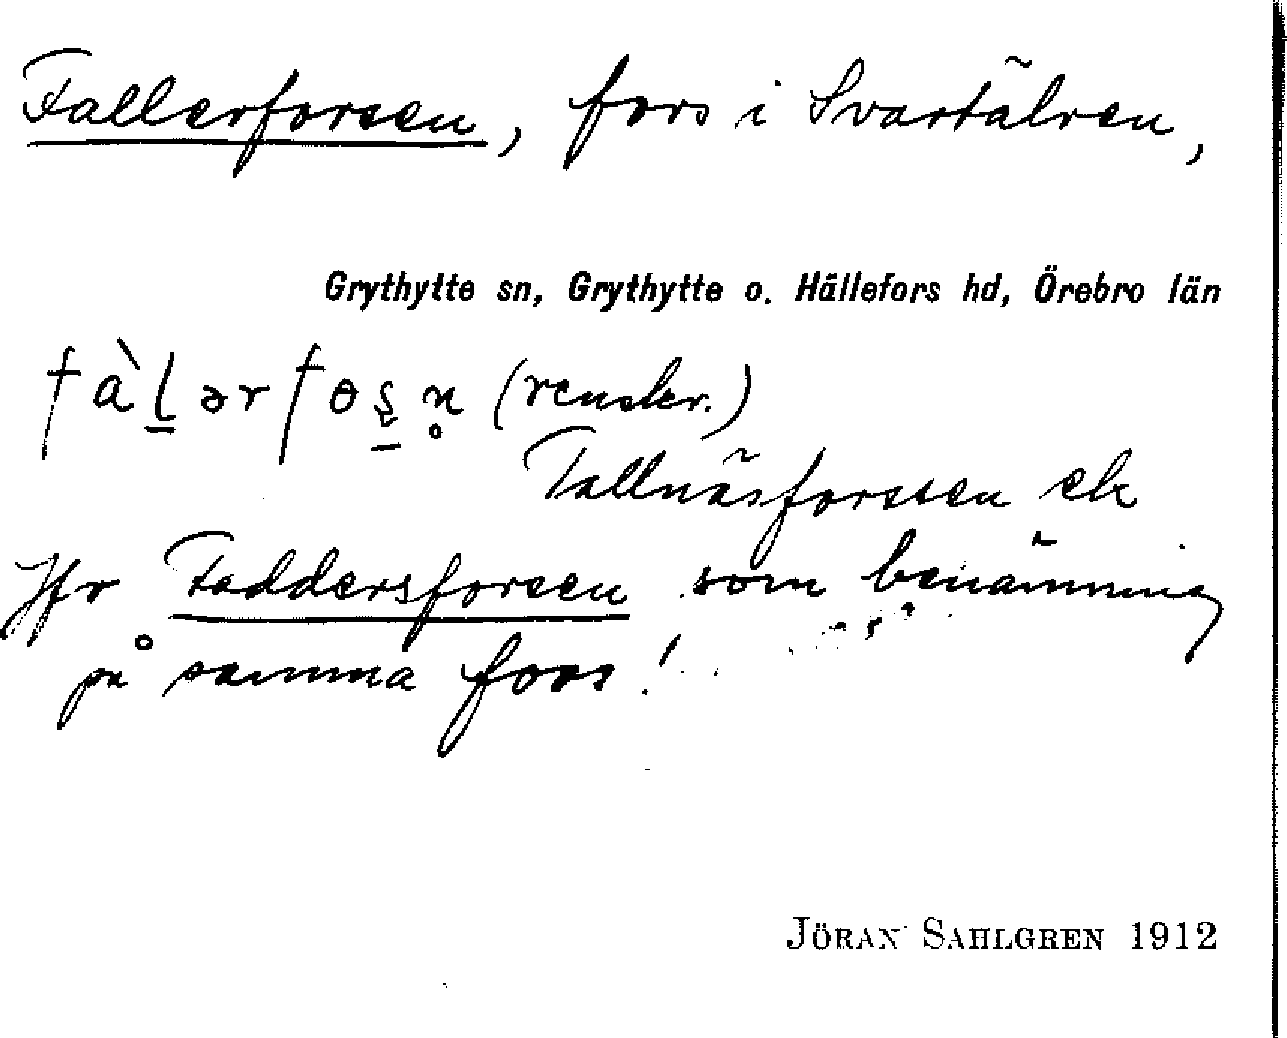 Fallerforsen, fors i Svartälven,
Grythytte sn, Grythytte o. Hällefors hd, Örebro län
fàlərfosn
Tallnäsforsen ek
Jfr Faddersforsen som benämning
på samma fors!
JÖRAN SAHLGREN 1912